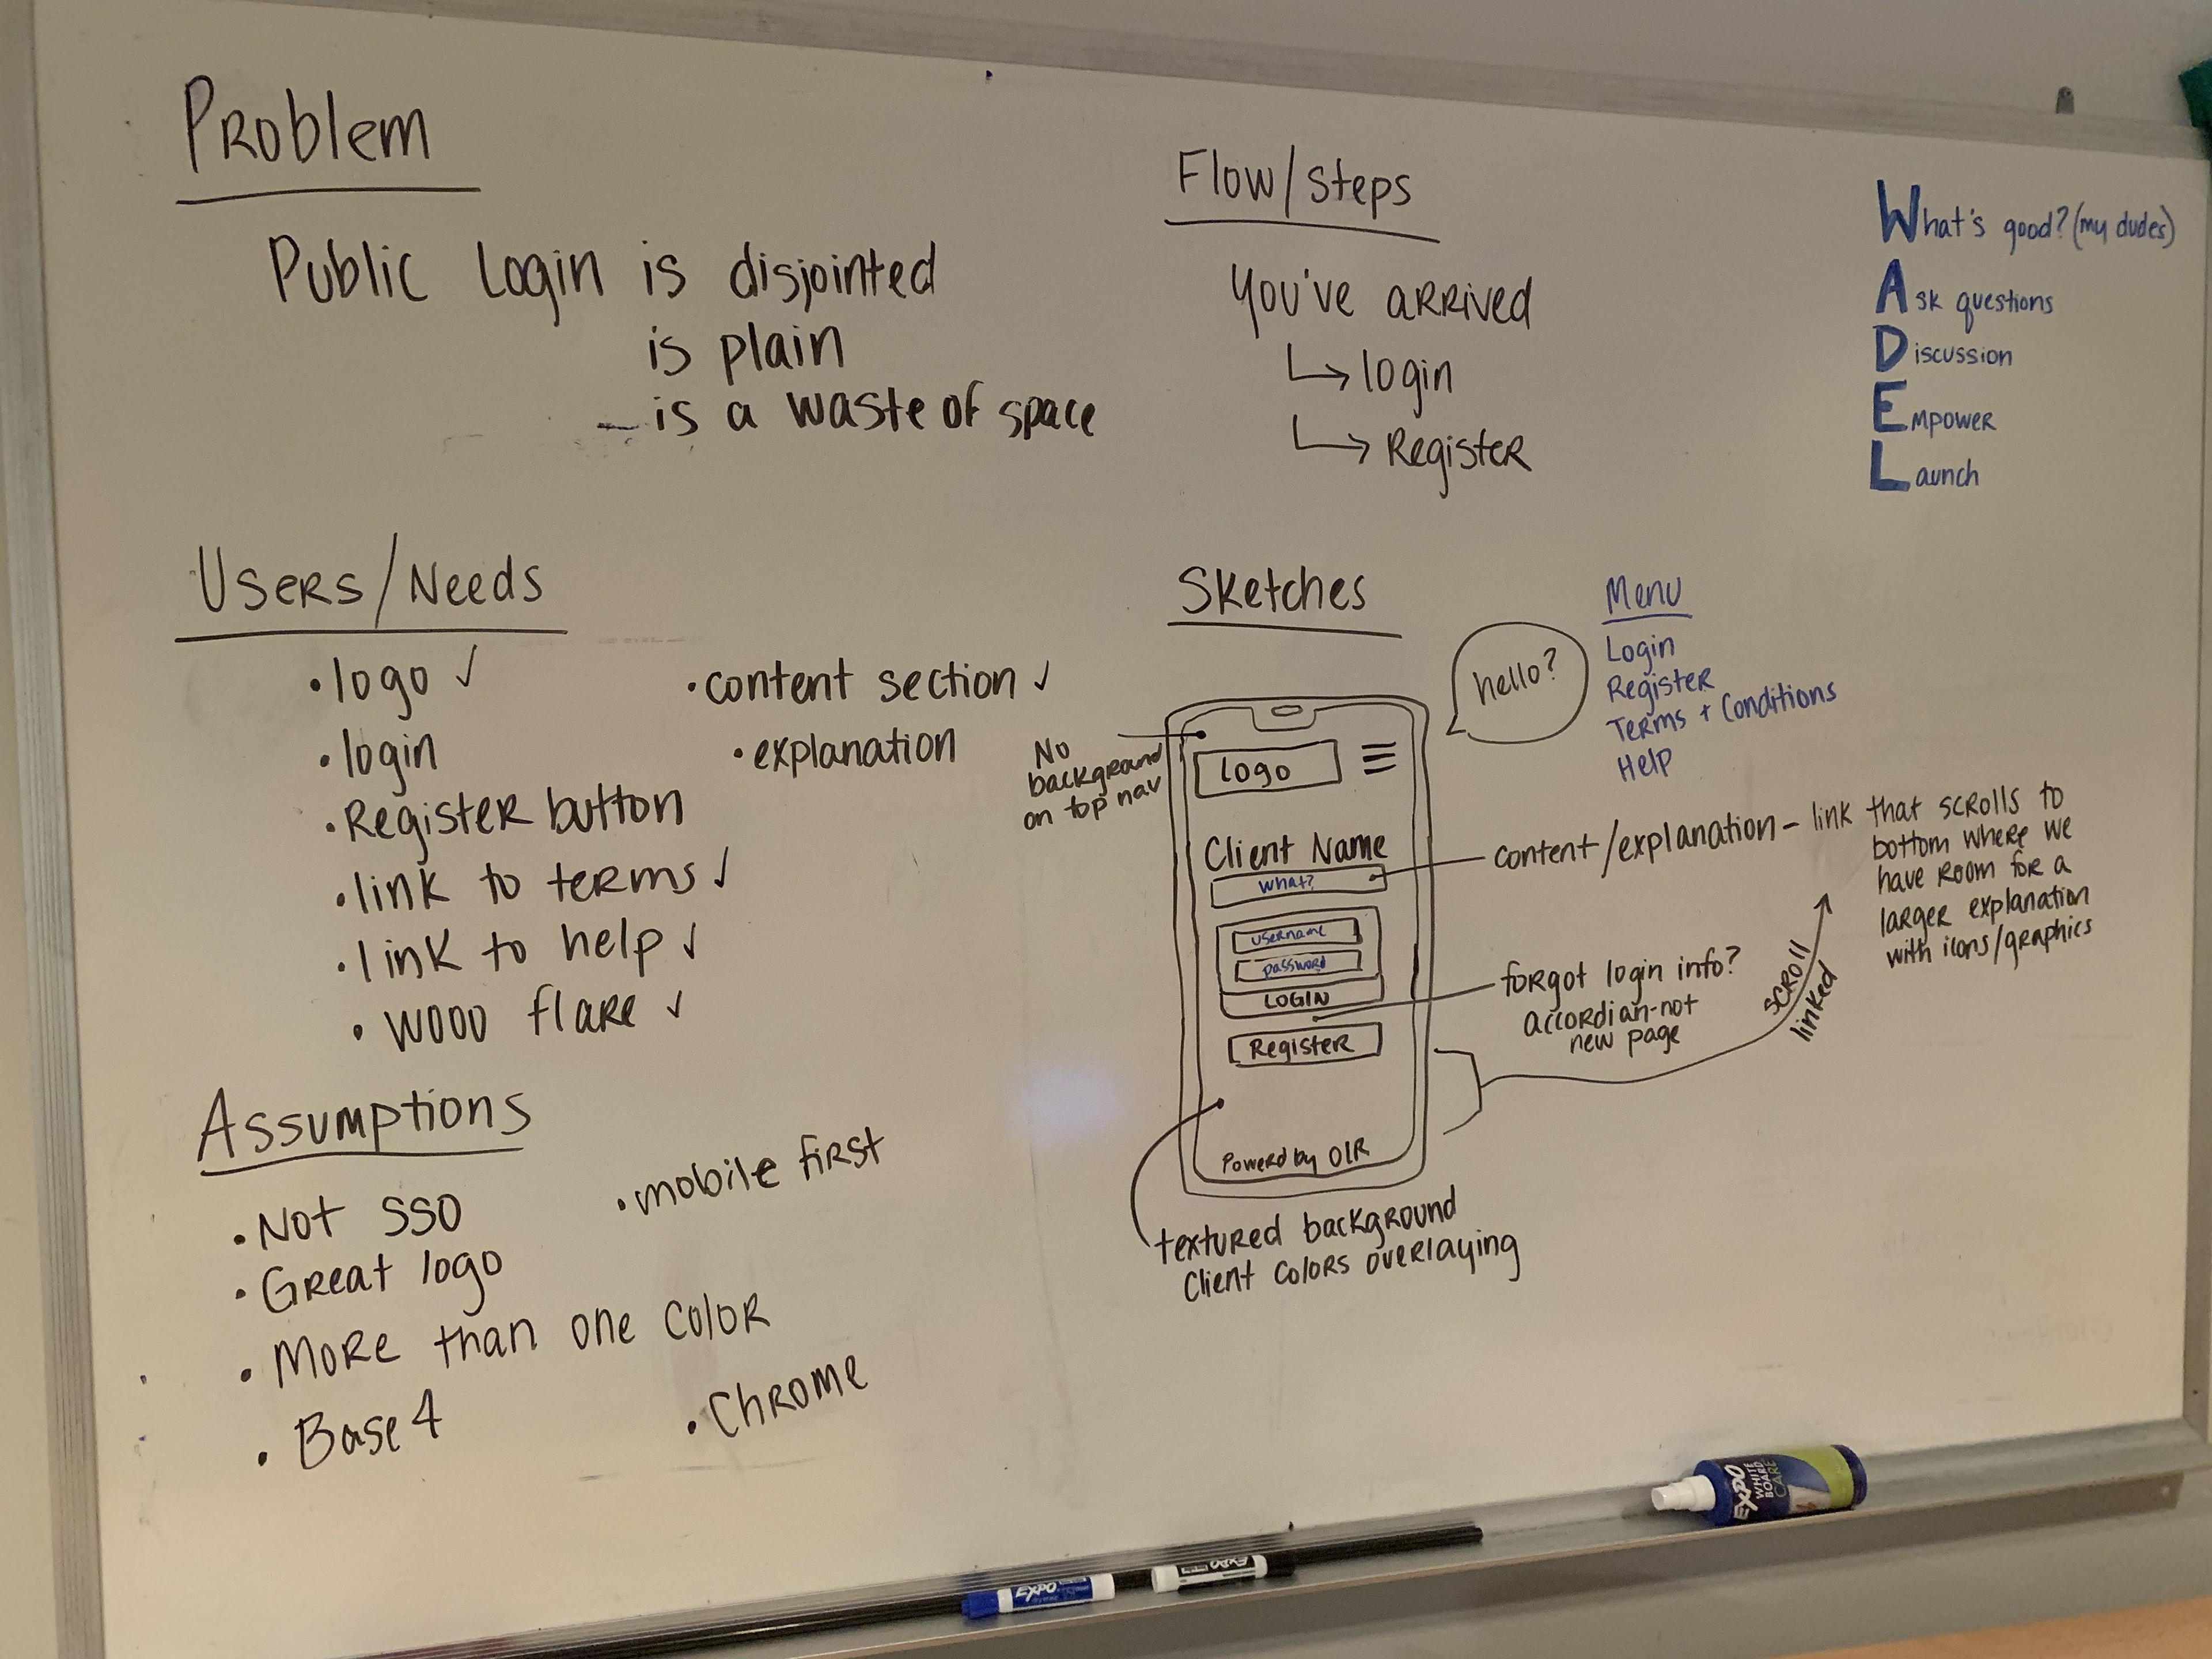 Problem
Public Login is disjointed
is plain
is a waste of space
Users/Needs
• logo ✓
• login
• Register button
• link to terms ✓
• link to help ✓
• WOOO flare ✓
• content section ✓
• explanation
Assumptions
• Not SSO
• Great logo
• More than one color
• Base 4
• mobile first
• Chrome
Flow/Steps
You've arrived
↳ login
↳ Register
What's good? (my dudes)
Ask questions
Discussion
Empower
Launch
Sketches
hello?
Menu
Login
Register
Terms + Conditions
Help
No
background
on top nav
Logo
Client Name
What?
username
password
LOGIN
Register
Powerd by OIR
content/explanation - link that scrolls to
bottom where we
have room for a
larger explanation
with icons/graphics
forgot login info?
accordian-not
new page
scroll
linked
textured background
Client colors overlaying
EXPO
WHITE
BOARD
CARE
EXPO
EXPO